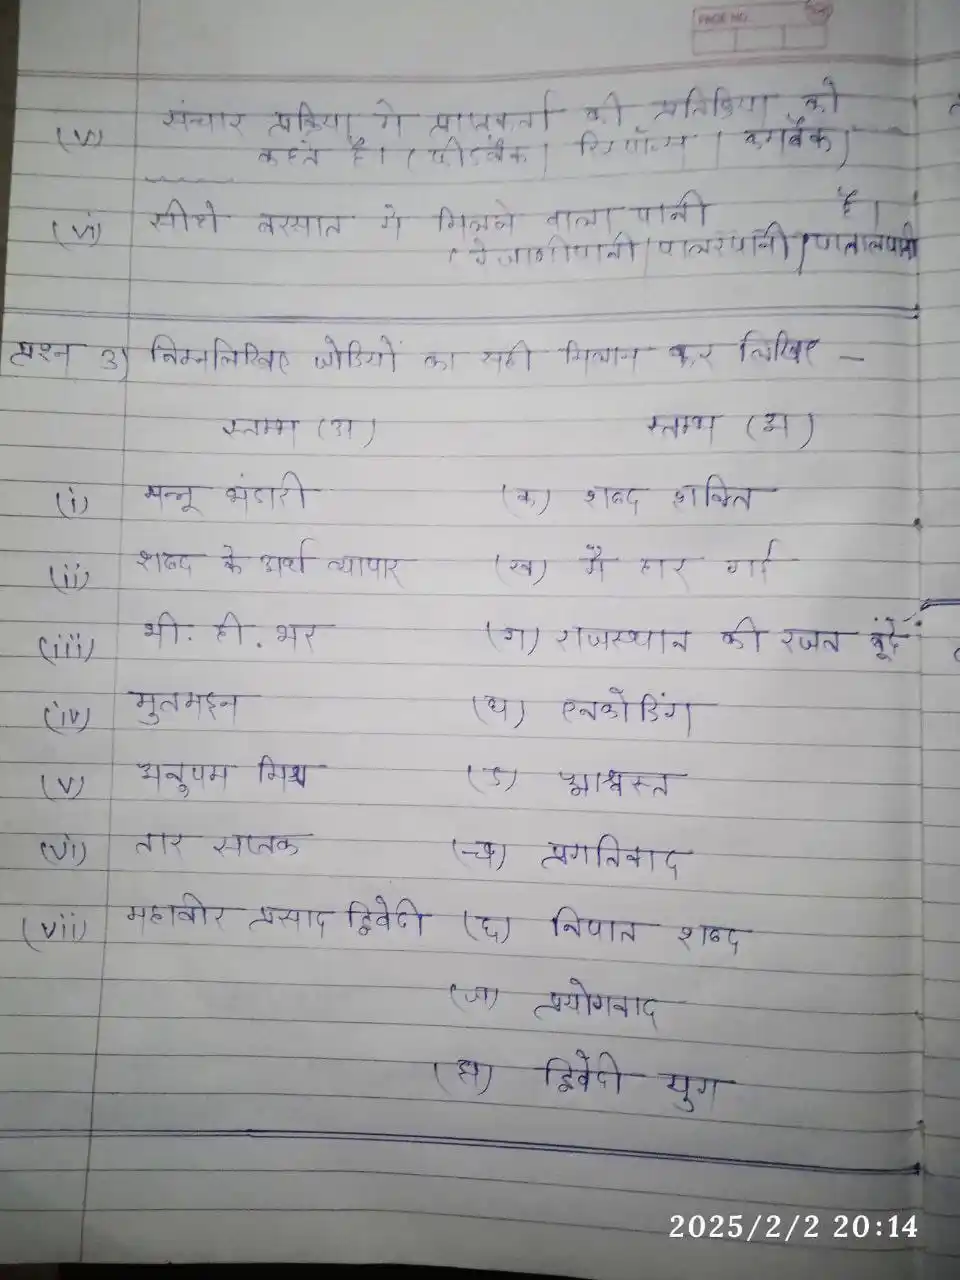 PAGE NO.
(v) संचार प्रक्रिया मे प्राप्तकर्ता की प्रतिक्रिया को
कहते है। (फीडबैक / रिस्पॉन्स / कमबैक)
(vi) सीधे बरसात मे मिलने वाला पानी है।
(रेजाणीपानी / पालरपानी / पातालपानी
प्रश्न 3) निम्नलिखित जोडियों का सही मिलान कर लिखिए –
स्तम्भ (अ) स्तम्भ (ब)
(i) मन्नू भंडारी (क) शब्द शक्ति
(ii) शब्द के अर्थ व्यापार (ख) मै हार गई
(iii) भी. ही. भर (ग) राजस्थान की रजत बूंदें
(iv) मुतमइन (घ) एनकोडिंग
(v) अनुपम मिश्र (ङ) आश्वस्त
(vi) तार सप्तक (च) प्रगतिवाद
(vii) महावीर प्रसाद द्विवेदी (छ) निपात शब्द
(ज) प्रयोगवाद
(झ) द्विवेदी युग
2025/2/2 20:14